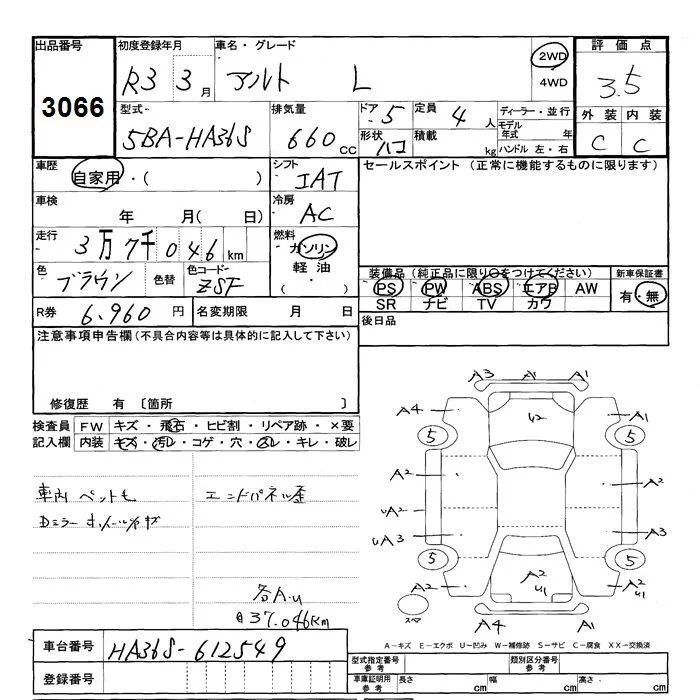 出品番号 初度登録年月 車名・グレード 評価点
3066 R3 3月 アルト L 2WD 4WD 3.5
型式 排気量 ドア 5 定員 4人 ディーラー・並行 外装 内装
5BA-HA36S 660cc 形状 ハコ 積載 kg モデル年式 年 C C
ハンドル 左・右
車歴 自家用・( ) シフト IAT セールスポイント (正常に機能するものに限ります)
車検 年 月( 日) 冷房 AC
走行 3万7千046km 燃料 ガソリン
軽油
・( )
色 ブラウン 色替 色コード ZSF 装備品 (純正品に限り○をつけてください) 新車保証書
PS PW ABS エアB AW 有・無
SR ナビ TV カワ
R券 6.960円 名変期限 月 日 後日品
注意事項申告欄(不具合内容等は具体的に記入して下さい)
修復歴 有 〔箇所 〕
検査員 FW キズ・飛石・ヒビ割・リペア跡・×要
記入欄 内装 キズ・汚レ・コゲ・穴・スレ・キレ・破レ
車内 ペットも エンドパネル歪
Dミラー
各A.u
37.046km
A3 A1 A1
A4 U2 A1
5 5
A2 A2
uA2
uA3 A3
5 5
A2 A2 U1 A2 U1
スペア A4 A1
A-キズ E-エクボ U-凹み W-補修跡 S-サビ C-腐食 XX-交換済
車台番号 HA36S-612549
登録番号
型式指定番号 参考 類別区分番号 参考
車庫証明用 参考 長さ cm 幅 cm 高さ cm